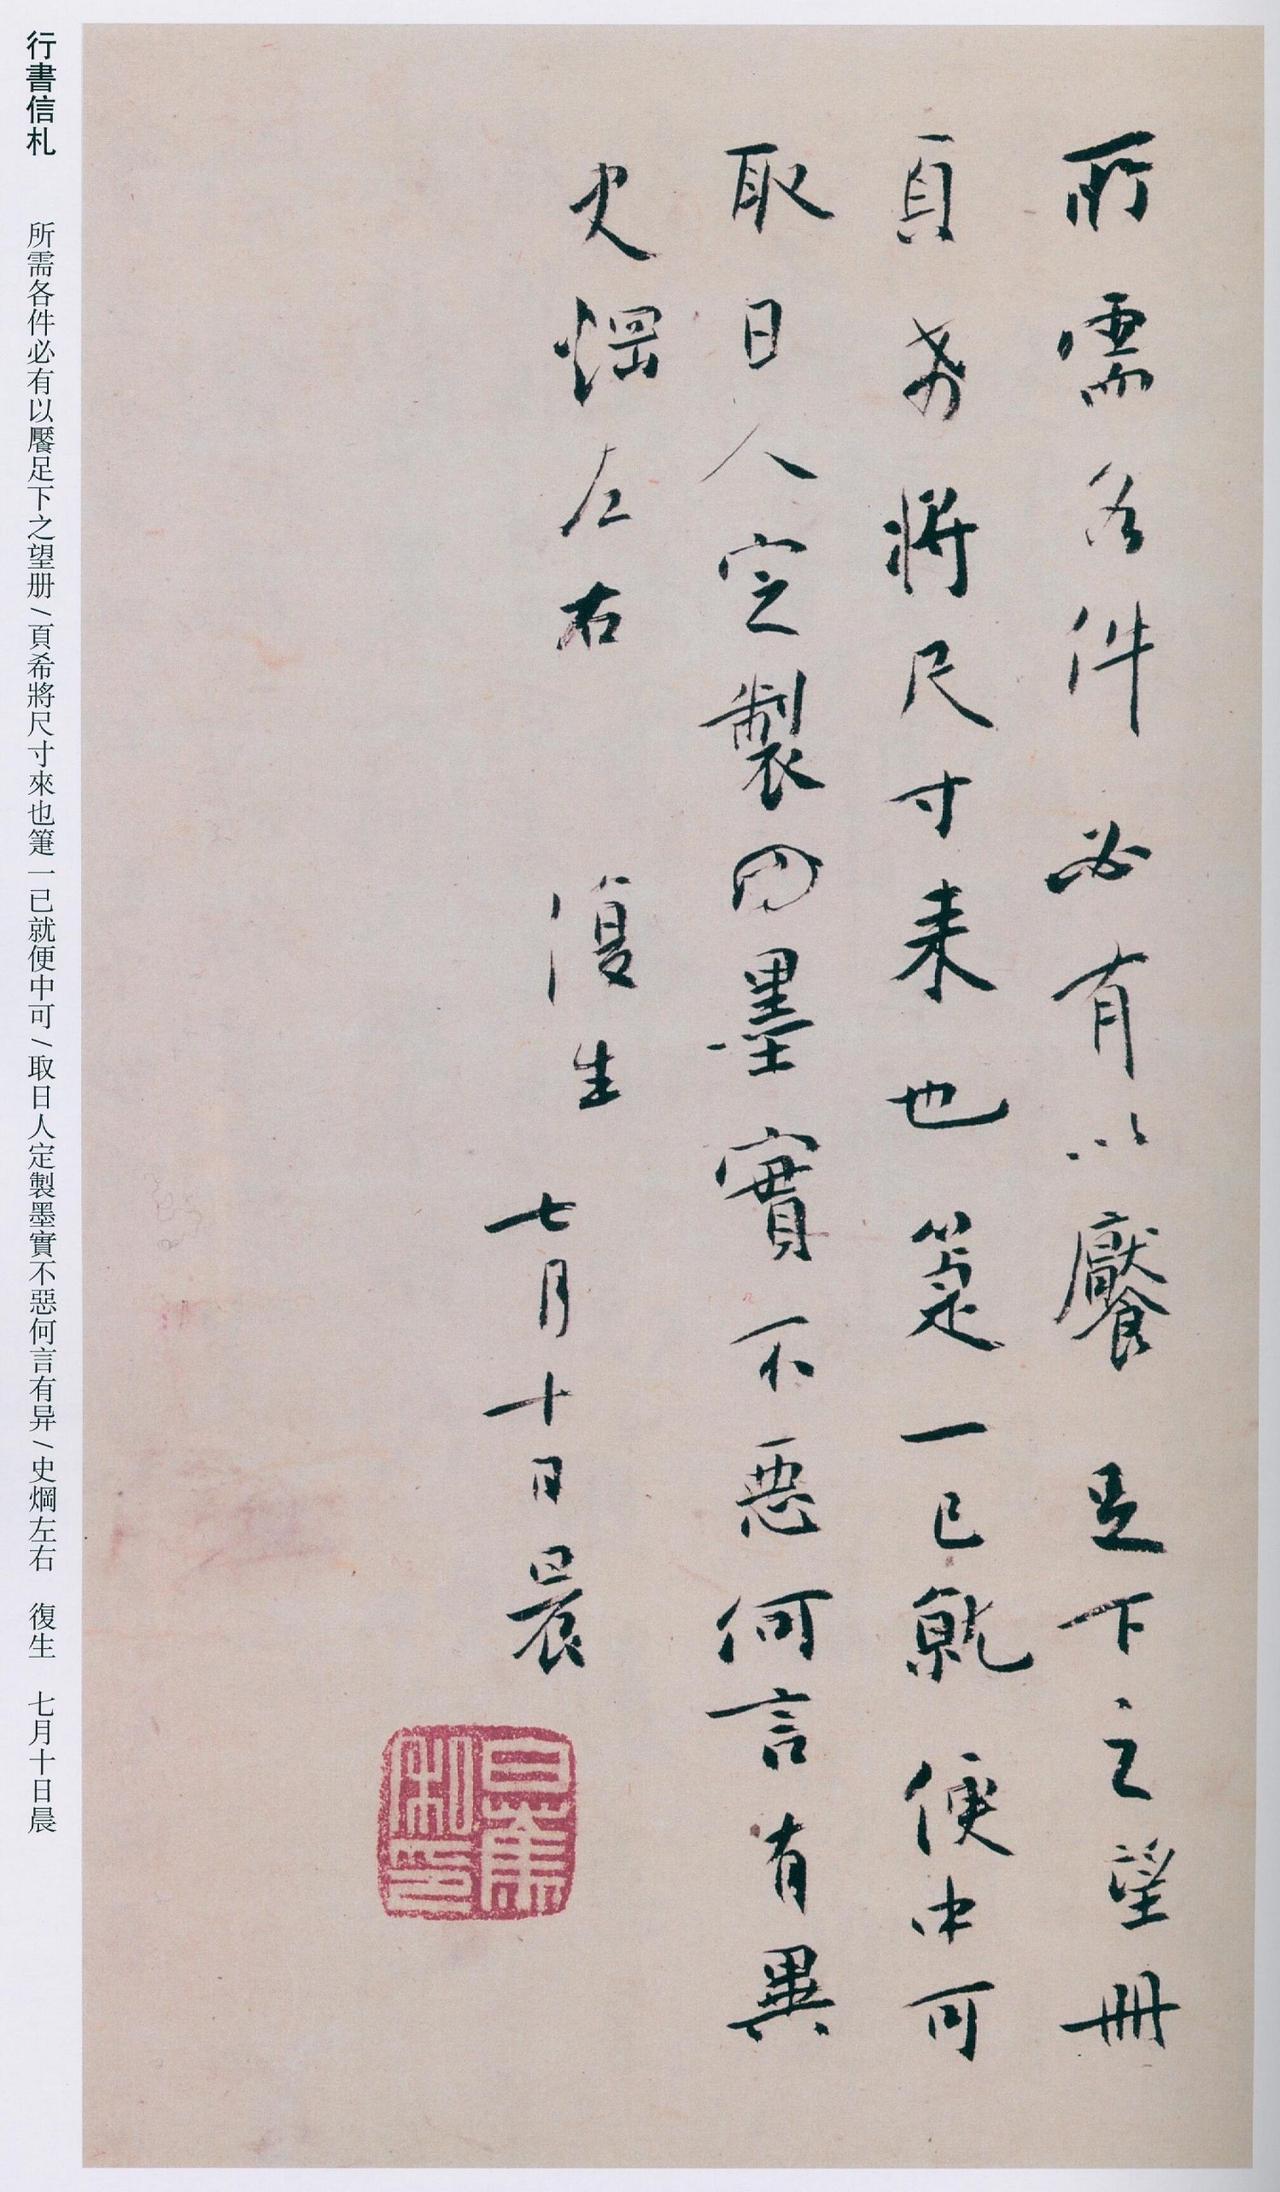 所需各件必有以饜足下之望冊
頁希將尺寸来也箑一已就便中可
取日人定製四墨實不惡何言有異
史焵左右
復生
七月十日晨
行書信札
所需各件必有以饜足下之望册/頁希將尺寸來也箑一已就便中可/取日人定製墨實不惡何言有异/史焵左右 復生 七月十日晨